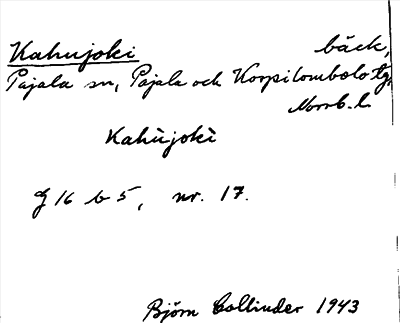 Kahujoki bäck,
Pajala sn, Pajala och Korpilombolo tg,
Norrb. l.
Kahùjokì
G 16 b 5, nr. 17.
Björn Collinder 1943